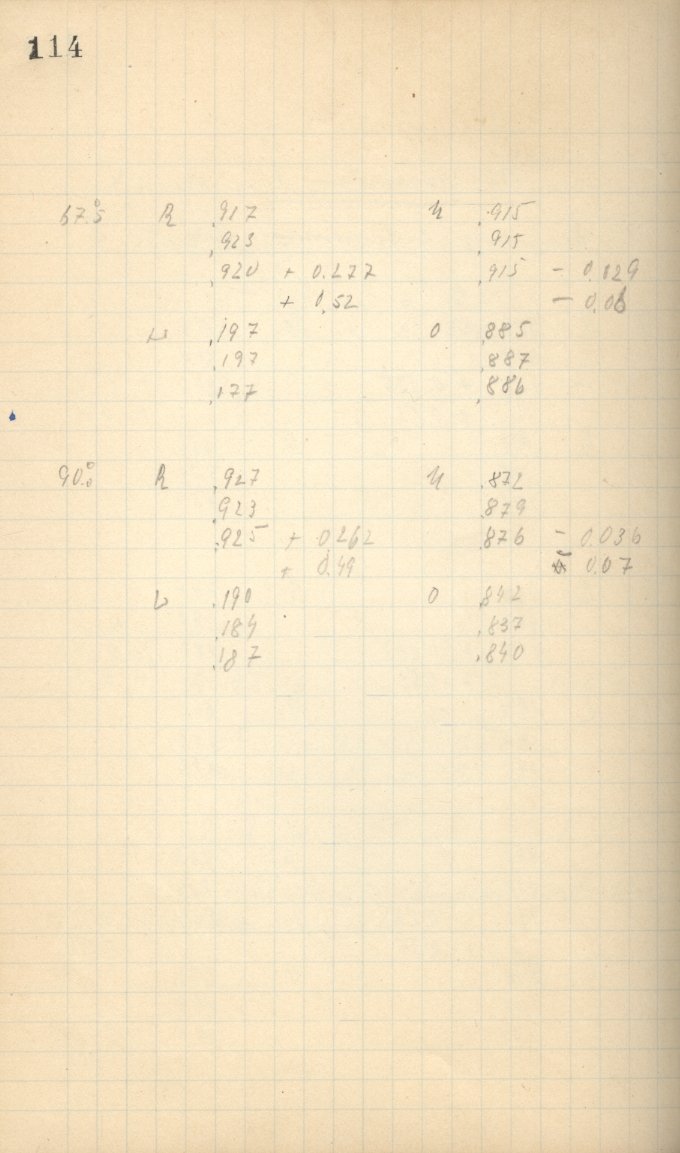 114
67.°5 R .917 U .915
.923 .915
.920 + 0.277 .915 - 0.029
+ 0.52 - 0.06
L .197 O .885
.197 .887
.177 .886
90.°0 R .927 U .872
.923 .879
.925 + 0.262 .876 - 0.036
+ 0.49 - 0.07
L .190 O .842
.184 .837
.187 .840